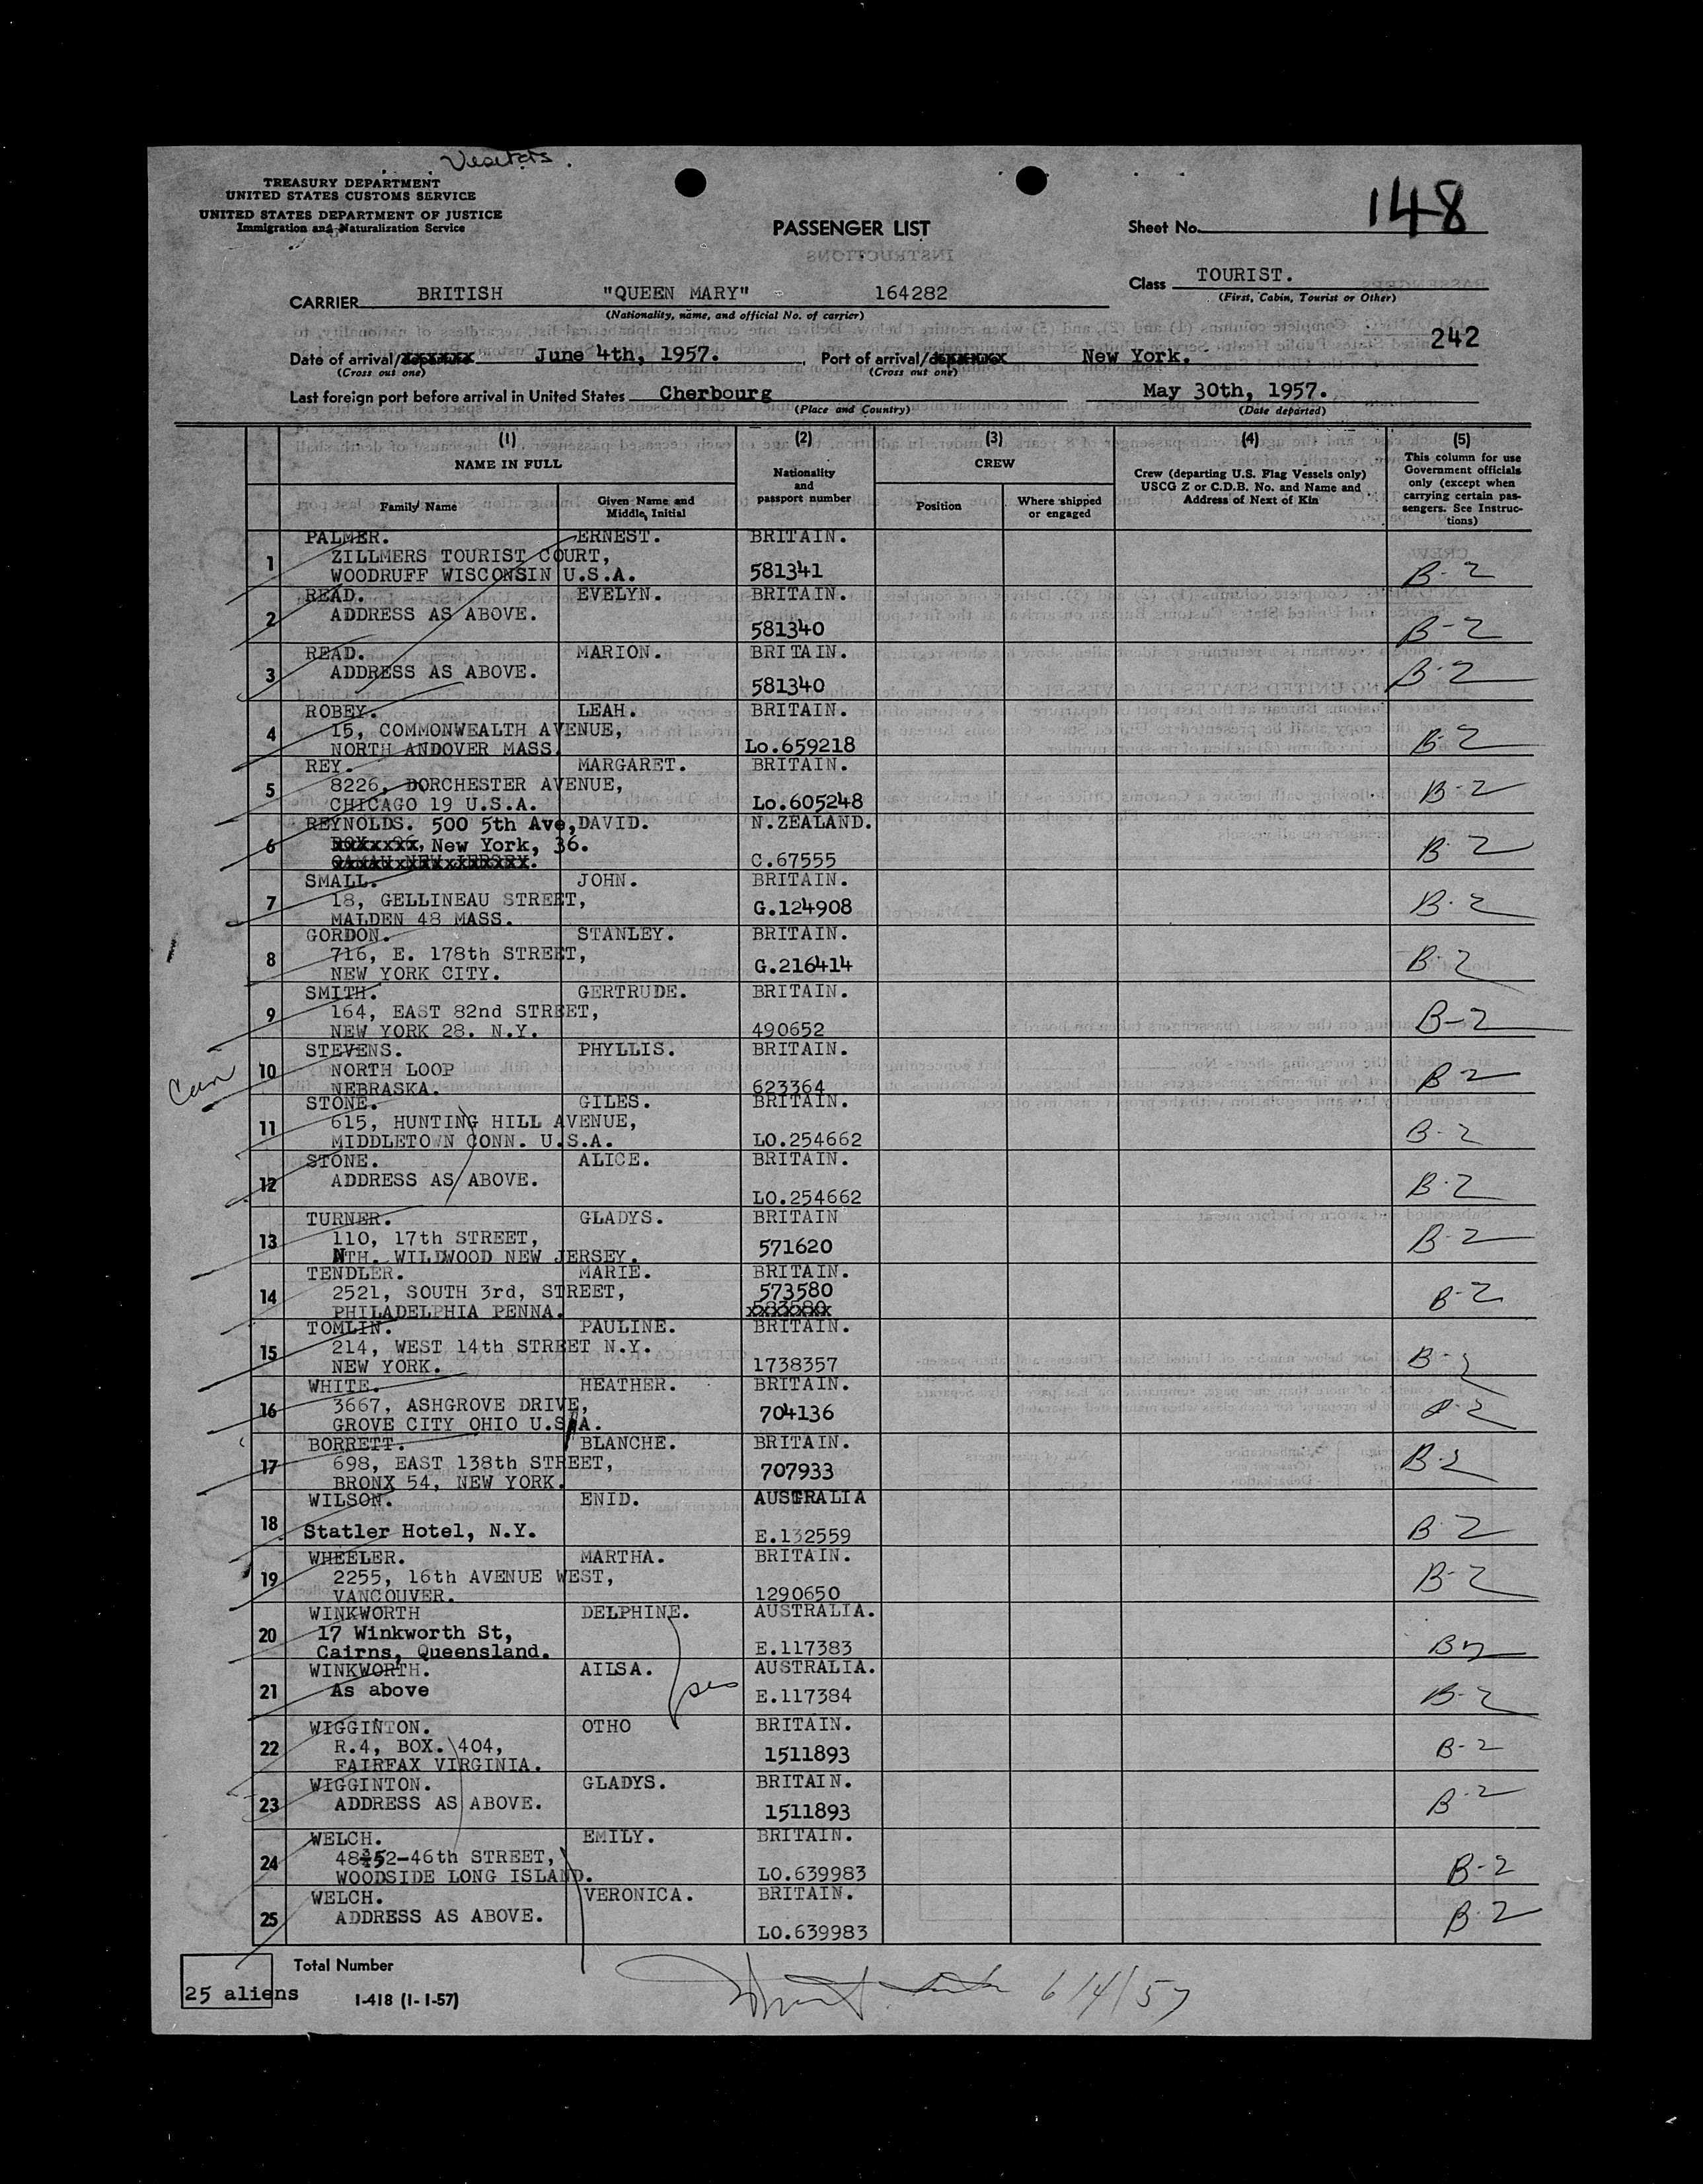 Visitors.
TREASURY DEPARTMENT
UNITED STATES CUSTOMS SERVICE
UNITED STATES DEPARTMENT OF JUSTICE
Immigration and Naturalization Service
PASSENGER LIST
Sheet No. 148
Class TOURIST.
(First, Cabin, Tourist or Other)
CARRIER BRITISH "QUEEN MARY" 164282
(Nationality, name, and official No. of carrier)
242
Date of arrival/departure June 4th, 1957. Port of arrival/departure New York.
(Cross out one) (Cross out one)
Last foreign port before arrival in United States Cherbourg May 30th, 1957.
(Place and Country) (Date departed)
(1) (2) (3) (4) (5)
NAME IN FULL
Family Name
Given Name and Middle Initial
Nationality and passport number
CREW
Position
Where shipped or engaged
Crew (departing U.S. Flag Vessels only) USCG Z or C.D.B. No. and Name and Address of Next of Kin
This column for use Government officials only (except when carrying certain passengers. See Instructions)
PALMER. ERNEST. BRITAIN.
1 ZILLMERS TOURIST COURT,
WOODRUFF WISCONSIN U.S.A. 581341 B-2
READ. EVELYN. BRITAIN.
2 ADDRESS AS ABOVE.
581340 B-2
READ. MARION. BRITAIN.
3 ADDRESS AS ABOVE. B-2
581340
ROBEY. LEAH. BRITAIN.
4 15, COMMONWEALTH AVENUE,
NORTH ANDOVER MASS. Lo.659218 B-2
REY. MARGARET. BRITAIN.
5 8226, DORCHESTER AVENUE, B-2
CHICAGO 19 U.S.A. Lo.605248
REYNOLDS. 500 5th Ave, DAVID. N.ZEALAND.
6 New York, 36. B-2
C.67555
SMALL. JOHN. BRITAIN.
7 18, GELLINEAU STREET, G.124908 B-2
MALDEN 48 MASS.
GORDON. STANLEY. BRITAIN.
8 716, E. 178th STREET, G.216414 B-2
NEW YORK CITY.
SMITH. GERTRUDE. BRITAIN.
9 164, EAST 82nd STREET, B-2
NEW YORK 28. N.Y. 490652
STEVENS. PHYLLIS. BRITAIN.
Can 10 NORTH LOOP B-2
NEBRASKA. 623364
STONE. GILES. BRITAIN.
11 615, HUNTING HILL AVENUE, B-2
MIDDLETOWN CONN. U.S.A. LO.254662
STONE. ALICE. BRITAIN.
12 ADDRESS AS ABOVE. B-2
LO.254662
TURNER. GLADYS. BRITAIN
13 110, 17th STREET, 571620 B-2
NTH. WILDWOOD NEW JERSEY.
TENDLER. MARIE. BRITAIN.
14 2521, SOUTH 3rd, STREET, 573580 B-2
PHILADELPHIA PENNA. 583580
TOMLIN. PAULINE. BRITAIN.
15 214, WEST 14th STREET N.Y. B-2
NEW YORK. 1738357
WHITE. HEATHER. BRITAIN.
16 3667, ASHGROVE DRIVE, 704136 B-2
GROVE CITY OHIO U.S.A.
BORRETT. BLANCHE. BRITAIN.
17 698, EAST 138th STREET, 707933 B-2
BRONX 54, NEW YORK.
WILSON. ENID. AUSTRALIA
18 Statler Hotel, N.Y. E.132559 B-2
WHEELER. MARTHA. BRITAIN.
19 2255, 16th AVENUE WEST, B-2
VANCOUVER. 1290650
WINKWORTH DELPHINE. AUSTRALIA.
20 17 Winkworth St,
Cairns, Queensland. E.117383 B-2
WINKWORTH. AILSA. AUSTRALIA.
21 As above E.117384 B-2
WIGGINTON. OTHO BRITAIN.
22 R.4, BOX. 404, 1511893 B-2
FAIRFAX VIRGINIA.
WIGGINTON. GLADYS. BRITAIN.
23 ADDRESS AS ABOVE. 1511893 B-2
WELCH. EMILY. BRITAIN.
24 52-46th STREET,
WOODSIDE LONG ISLAND. LO.639983 B-2
WELCH. VERONICA. BRITAIN.
25 ADDRESS AS ABOVE. B-2
LO.639983
Total Number
25 aliens
I-418 (1-1-57)
6/4/57